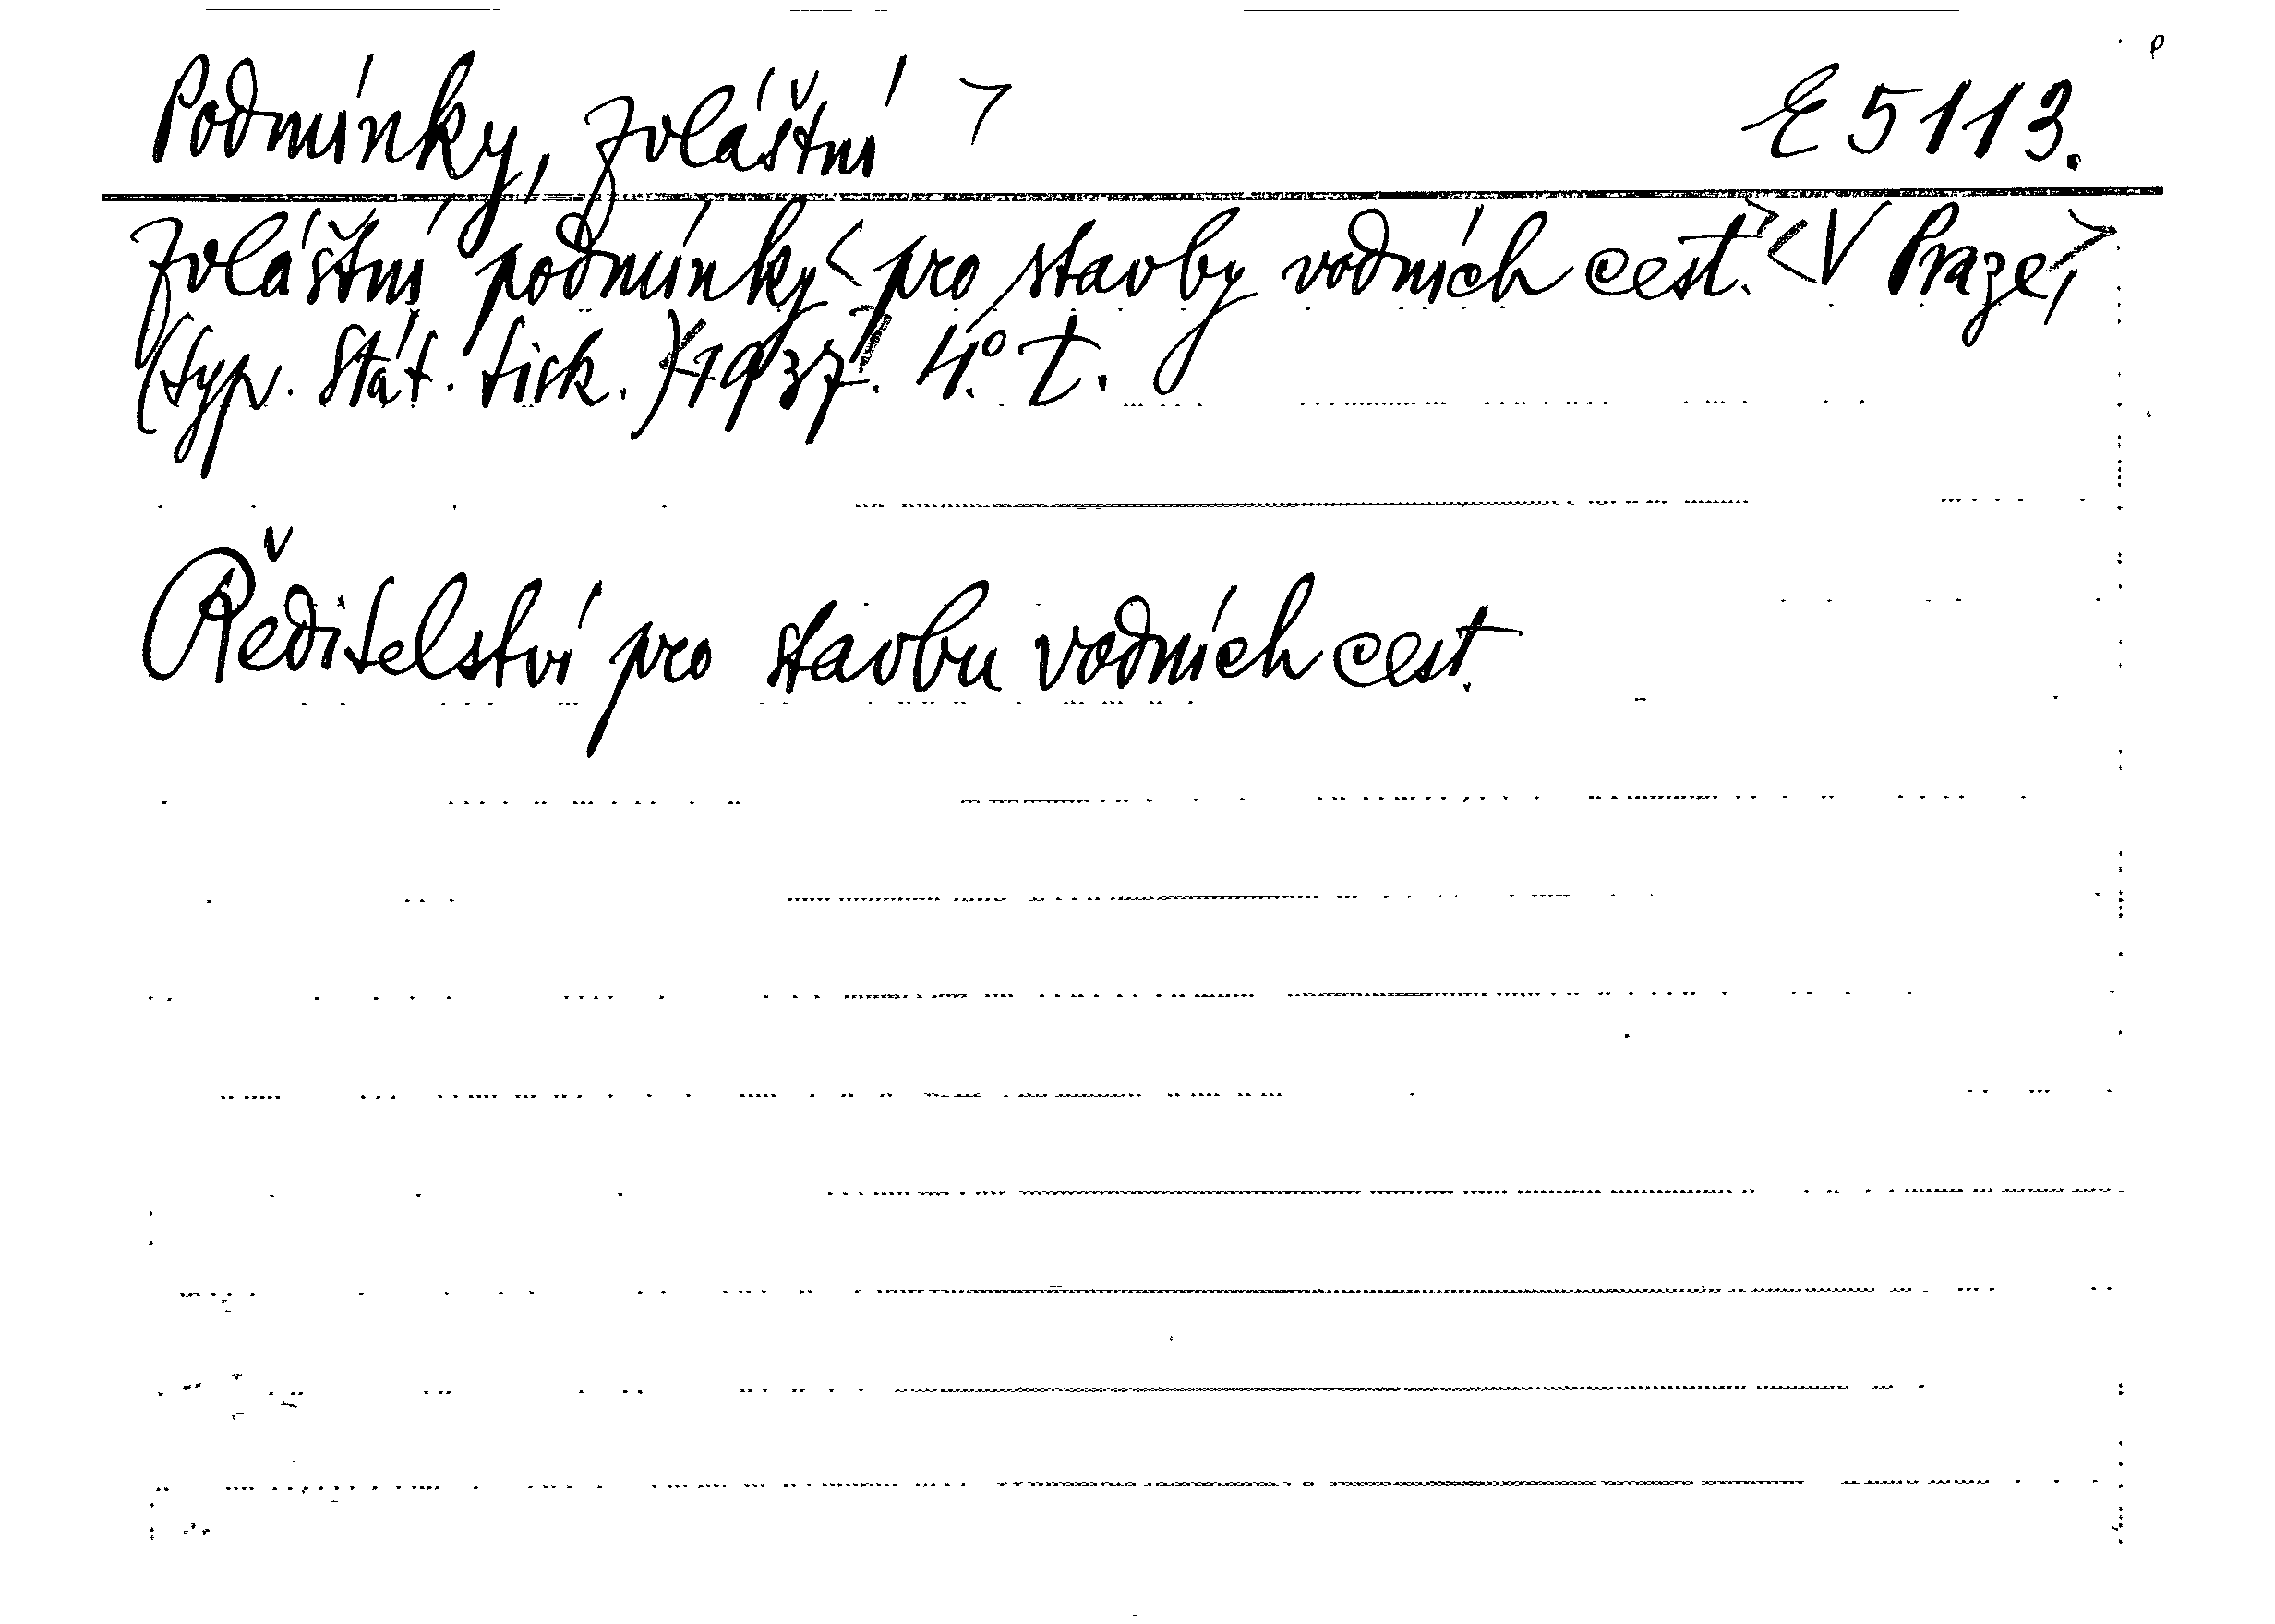 Podmínky, zvláštní > E 5113.
Zvláštní podmínky < pro stavby vodních cest.> <V Praze,>
(typ. Stát. tisk.) <1937>. 4.° t.
Ředitelství pro stavbu vodních cest.